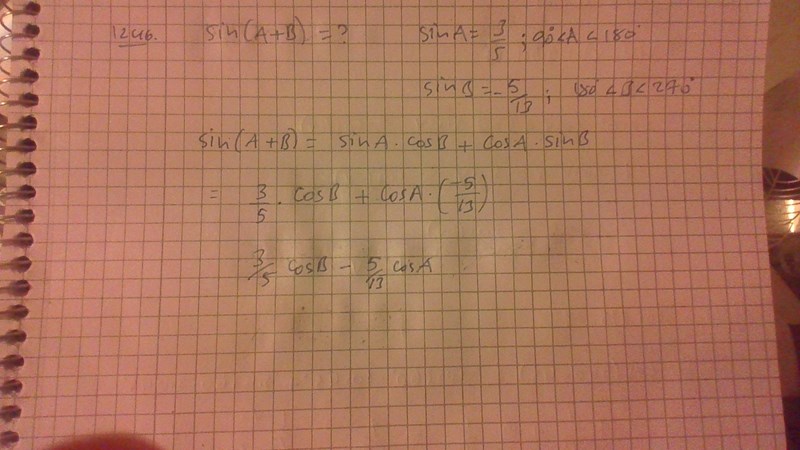 1246. sin(A+B) = ? sinA = 3/5 ; 90° < A < 180°
sinB = -5/13 ; 180° < B < 270°
sin(A+B) = sinA · cosB + cosA · sinB
= 3/5 · cosB + cosA · (-5/13)
3/5 cosB - 5/13 cosA